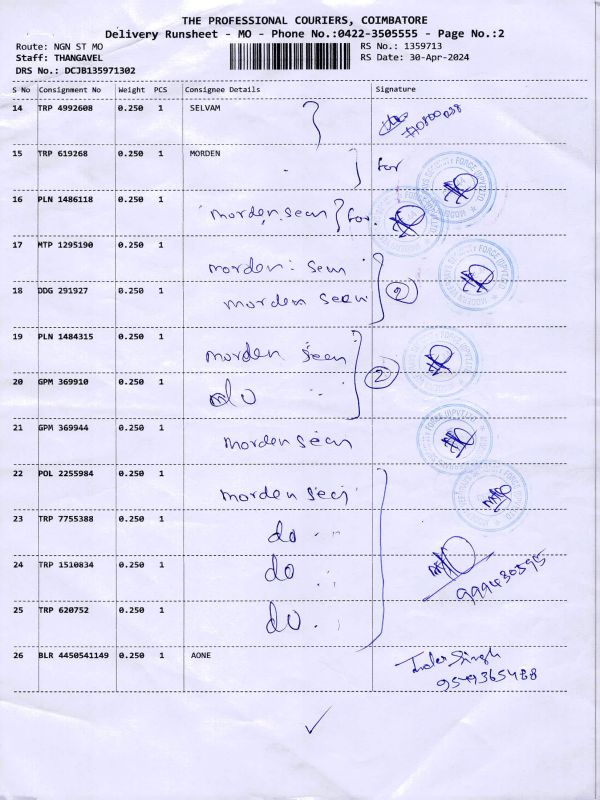 THE PROFESSIONAL COURIERS, COIMBATORE
Delivery Runsheet - MO - Phone No.:0422-3505555 - Page No.:2
Route: NGN ST MO
RS No.: 1359713
Staff: THANGAVEL
RS Date: 30-Apr-2024
DRS No.: DCJB135971302
S No Consignment No Weight PCS Consignee Details Signature
14 TRP 4992608 0.250 1 SELVAM
15 TRP 619268 0.250 1 MORDEN for
16 PLN 1486118 0.250 1 morden seen for
17 MTP 1295190 0.250 1 morden seen
18 DDG 291927 0.250 1 morden seen 2
19 PLN 1484315 0.250 1 morden seen
20 GPM 369910 0.250 1 do 2
21 GPM 369944 0.250 1 morden seen
22 POL 2255984 0.250 1 morden seen
23 TRP 7755388 0.250 1 do
24 TRP 1510834 0.250 1 do
25 TRP 620752 0.250 1 do
26 BLR 4450541149 0.250 1 AONE Inder Singh
9549365488